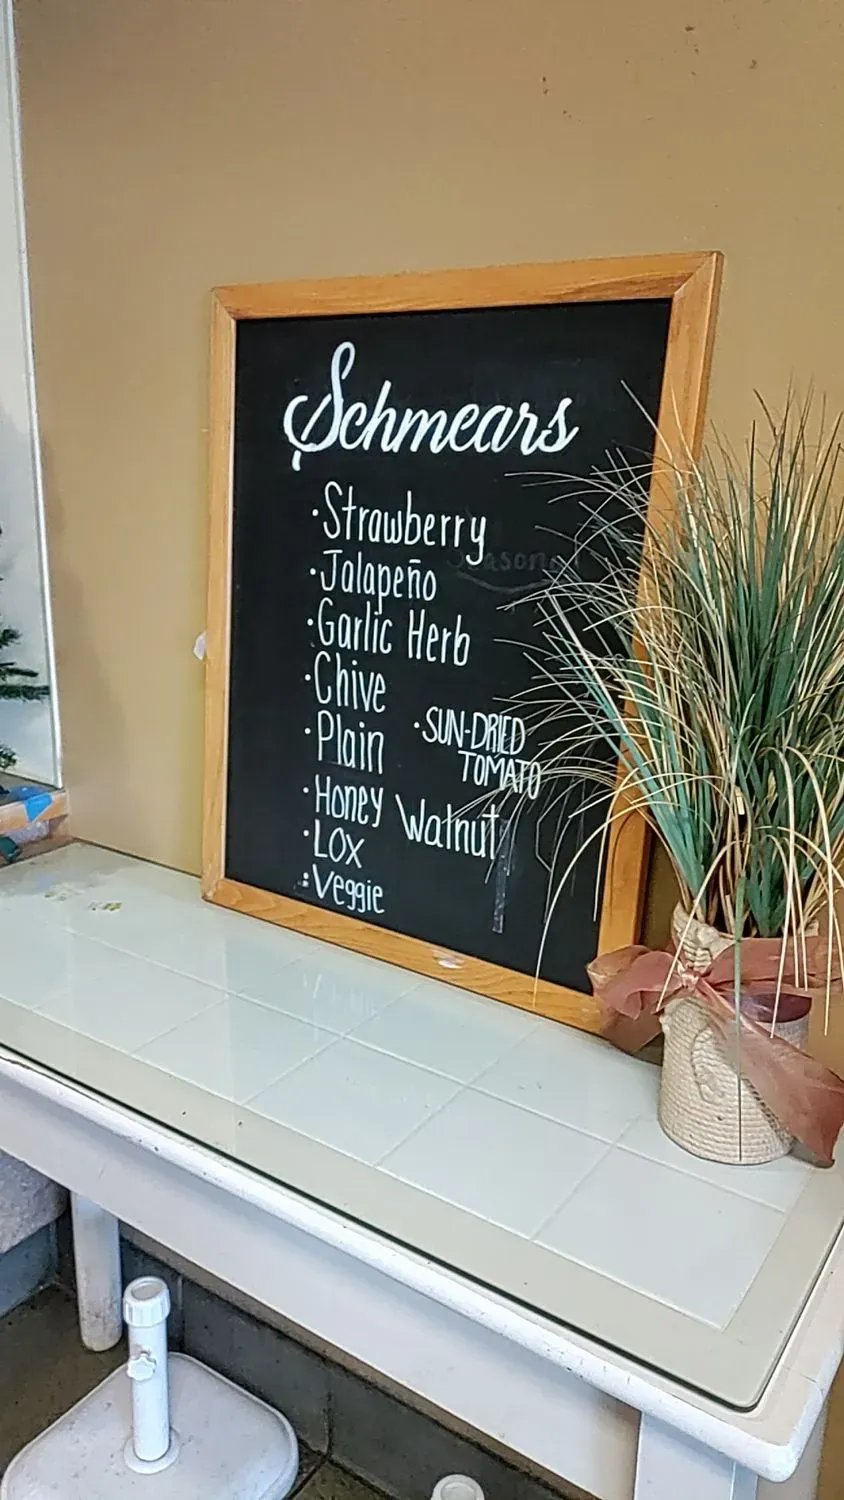 Schmears
·Strawberry
·Jalapeño
·Garlic Herb
·Chive
·Plain
·SUN-DRIED
TOMATO
·Honey Walnut
·LOX
·Veggie